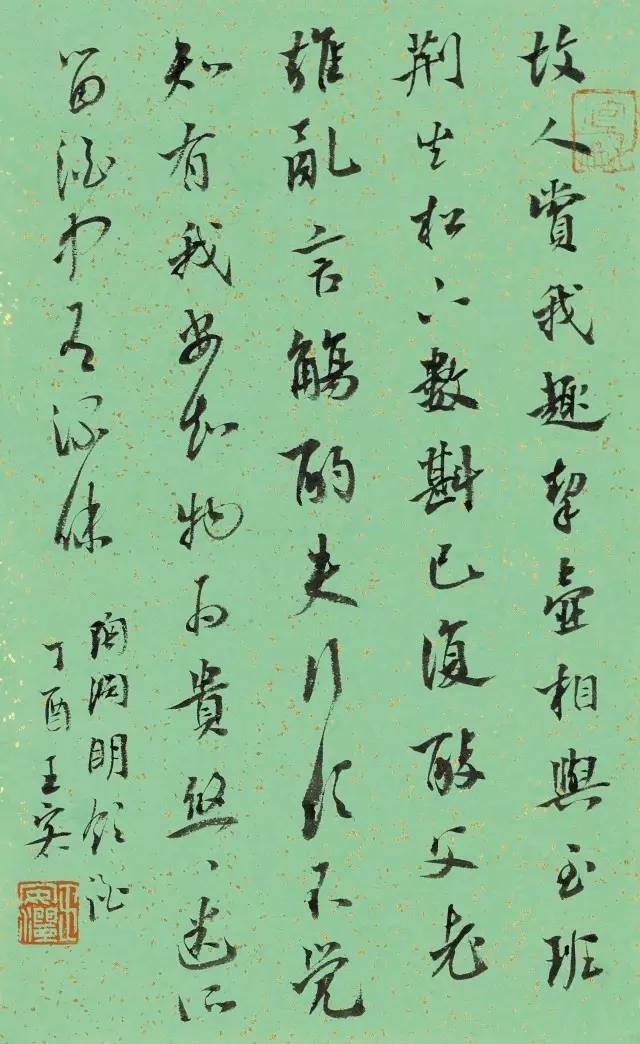 故人賞我趣挈壺相與至班
荊坐松下數斟已復醉父老
雜亂言觴酌失行次不覺
知有我安知物為貴悠、迷所
留酒中有深味
陶淵明飲酒
丁酉王实